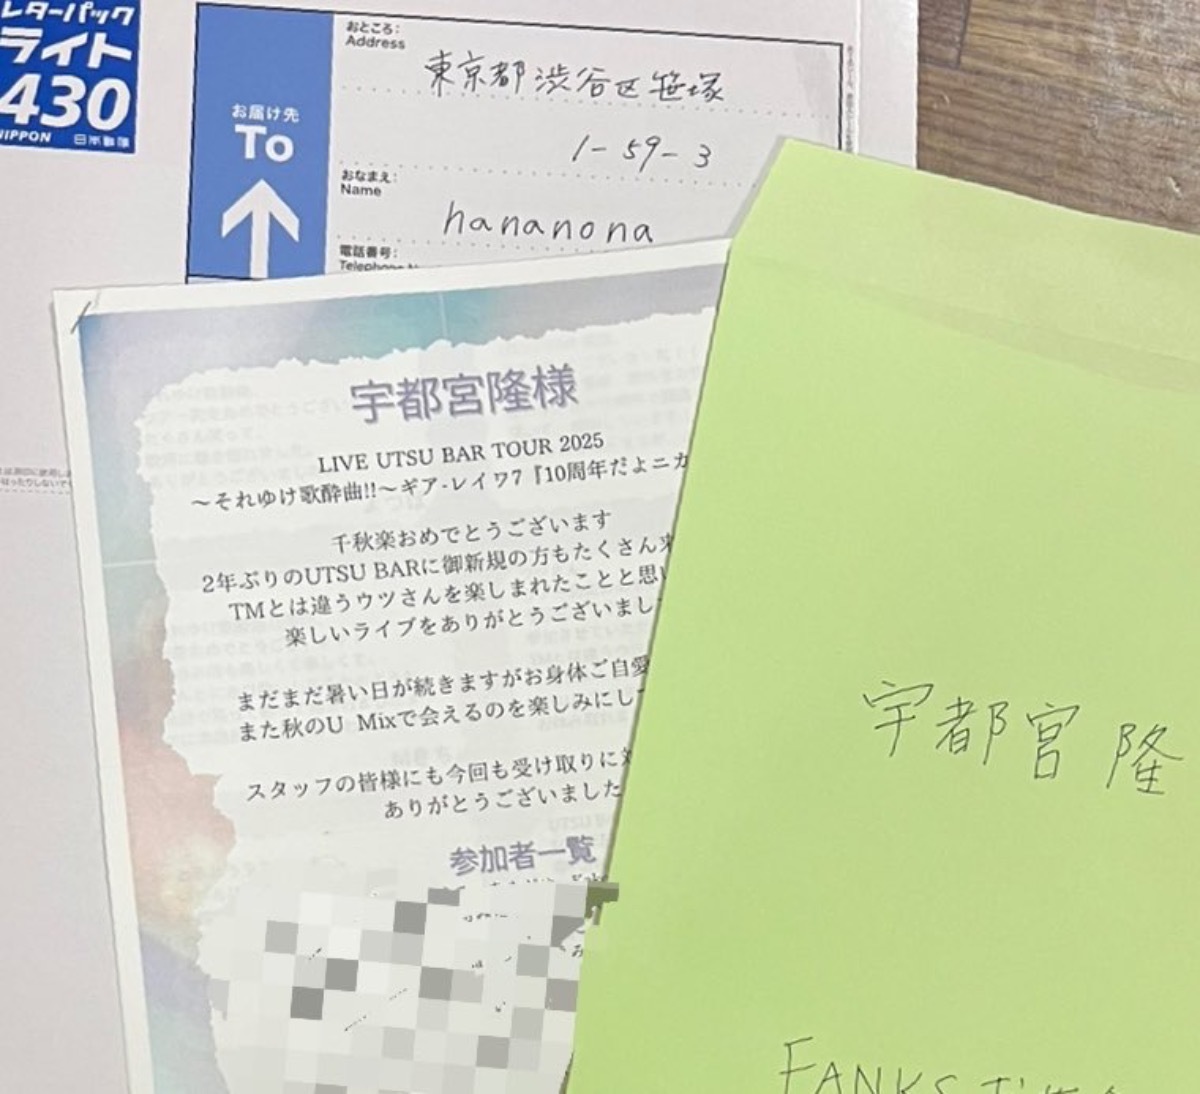 レターパック
ライト
430
NIPPON 日本郵便
お届け先
To
おところ:
Address
東京都渋谷区笹塚
1-59-3
おなまえ:
Name
hananona
電話番号:
Telephone
宇都宮隆様
LIVE UTSU BAR TOUR 2025
～それゆけ歌酔曲!!～ギア-レイワ7『10周年だよニカ
千秋楽おめでとうございます
2年ぶりのUTSU BARに御新規の方もたくさん来
TMとは違うウツさんを楽しまれたことと思い
楽しいライブをありがとうございまし
まだまだ暑い日が続きますがお身体ご自愛
また秋のU Mixで会えるのを楽しみにして
スタッフの皆様にも今回も受け取りに対
ありがとうございました
参加者一覧
宇都宮 隆
FANKS